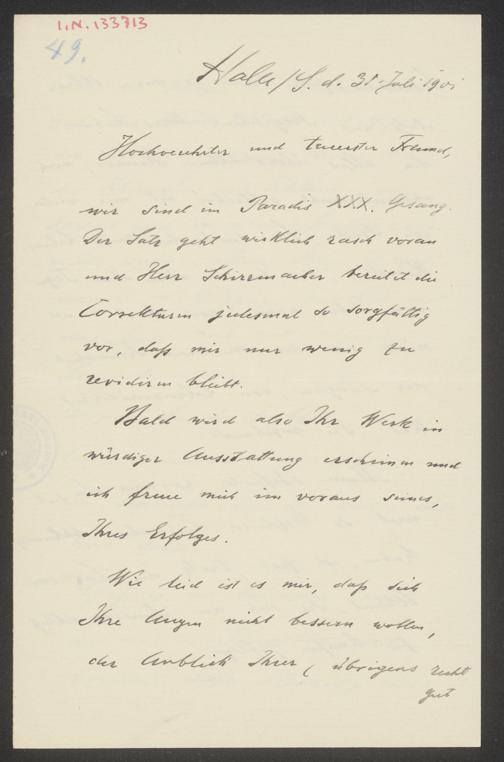 I.N. 133713
49.
Halle/S. d. 31 Juli 1901
Hochverehrter und teuerster Freund,
wir sind im Paradis XXX. Gesang.
Der Satz geht wirklich rasch voran
und Herr Schirrmacher bereitet die
Correkturen jedesmal so sorgfältig
vor, daß mir nur wenig zu
revidiren bleibt.
Bald wird also Ihr Werk in
würdiger Ausstattung erscheinen und
ich freue mich im voraus seines,
Ihres Erfolges.
Wie leid ist es mir, daß sich
Ihre Augen nicht bessern wollen,
der Anblick Ihrer (übrigens recht
gut